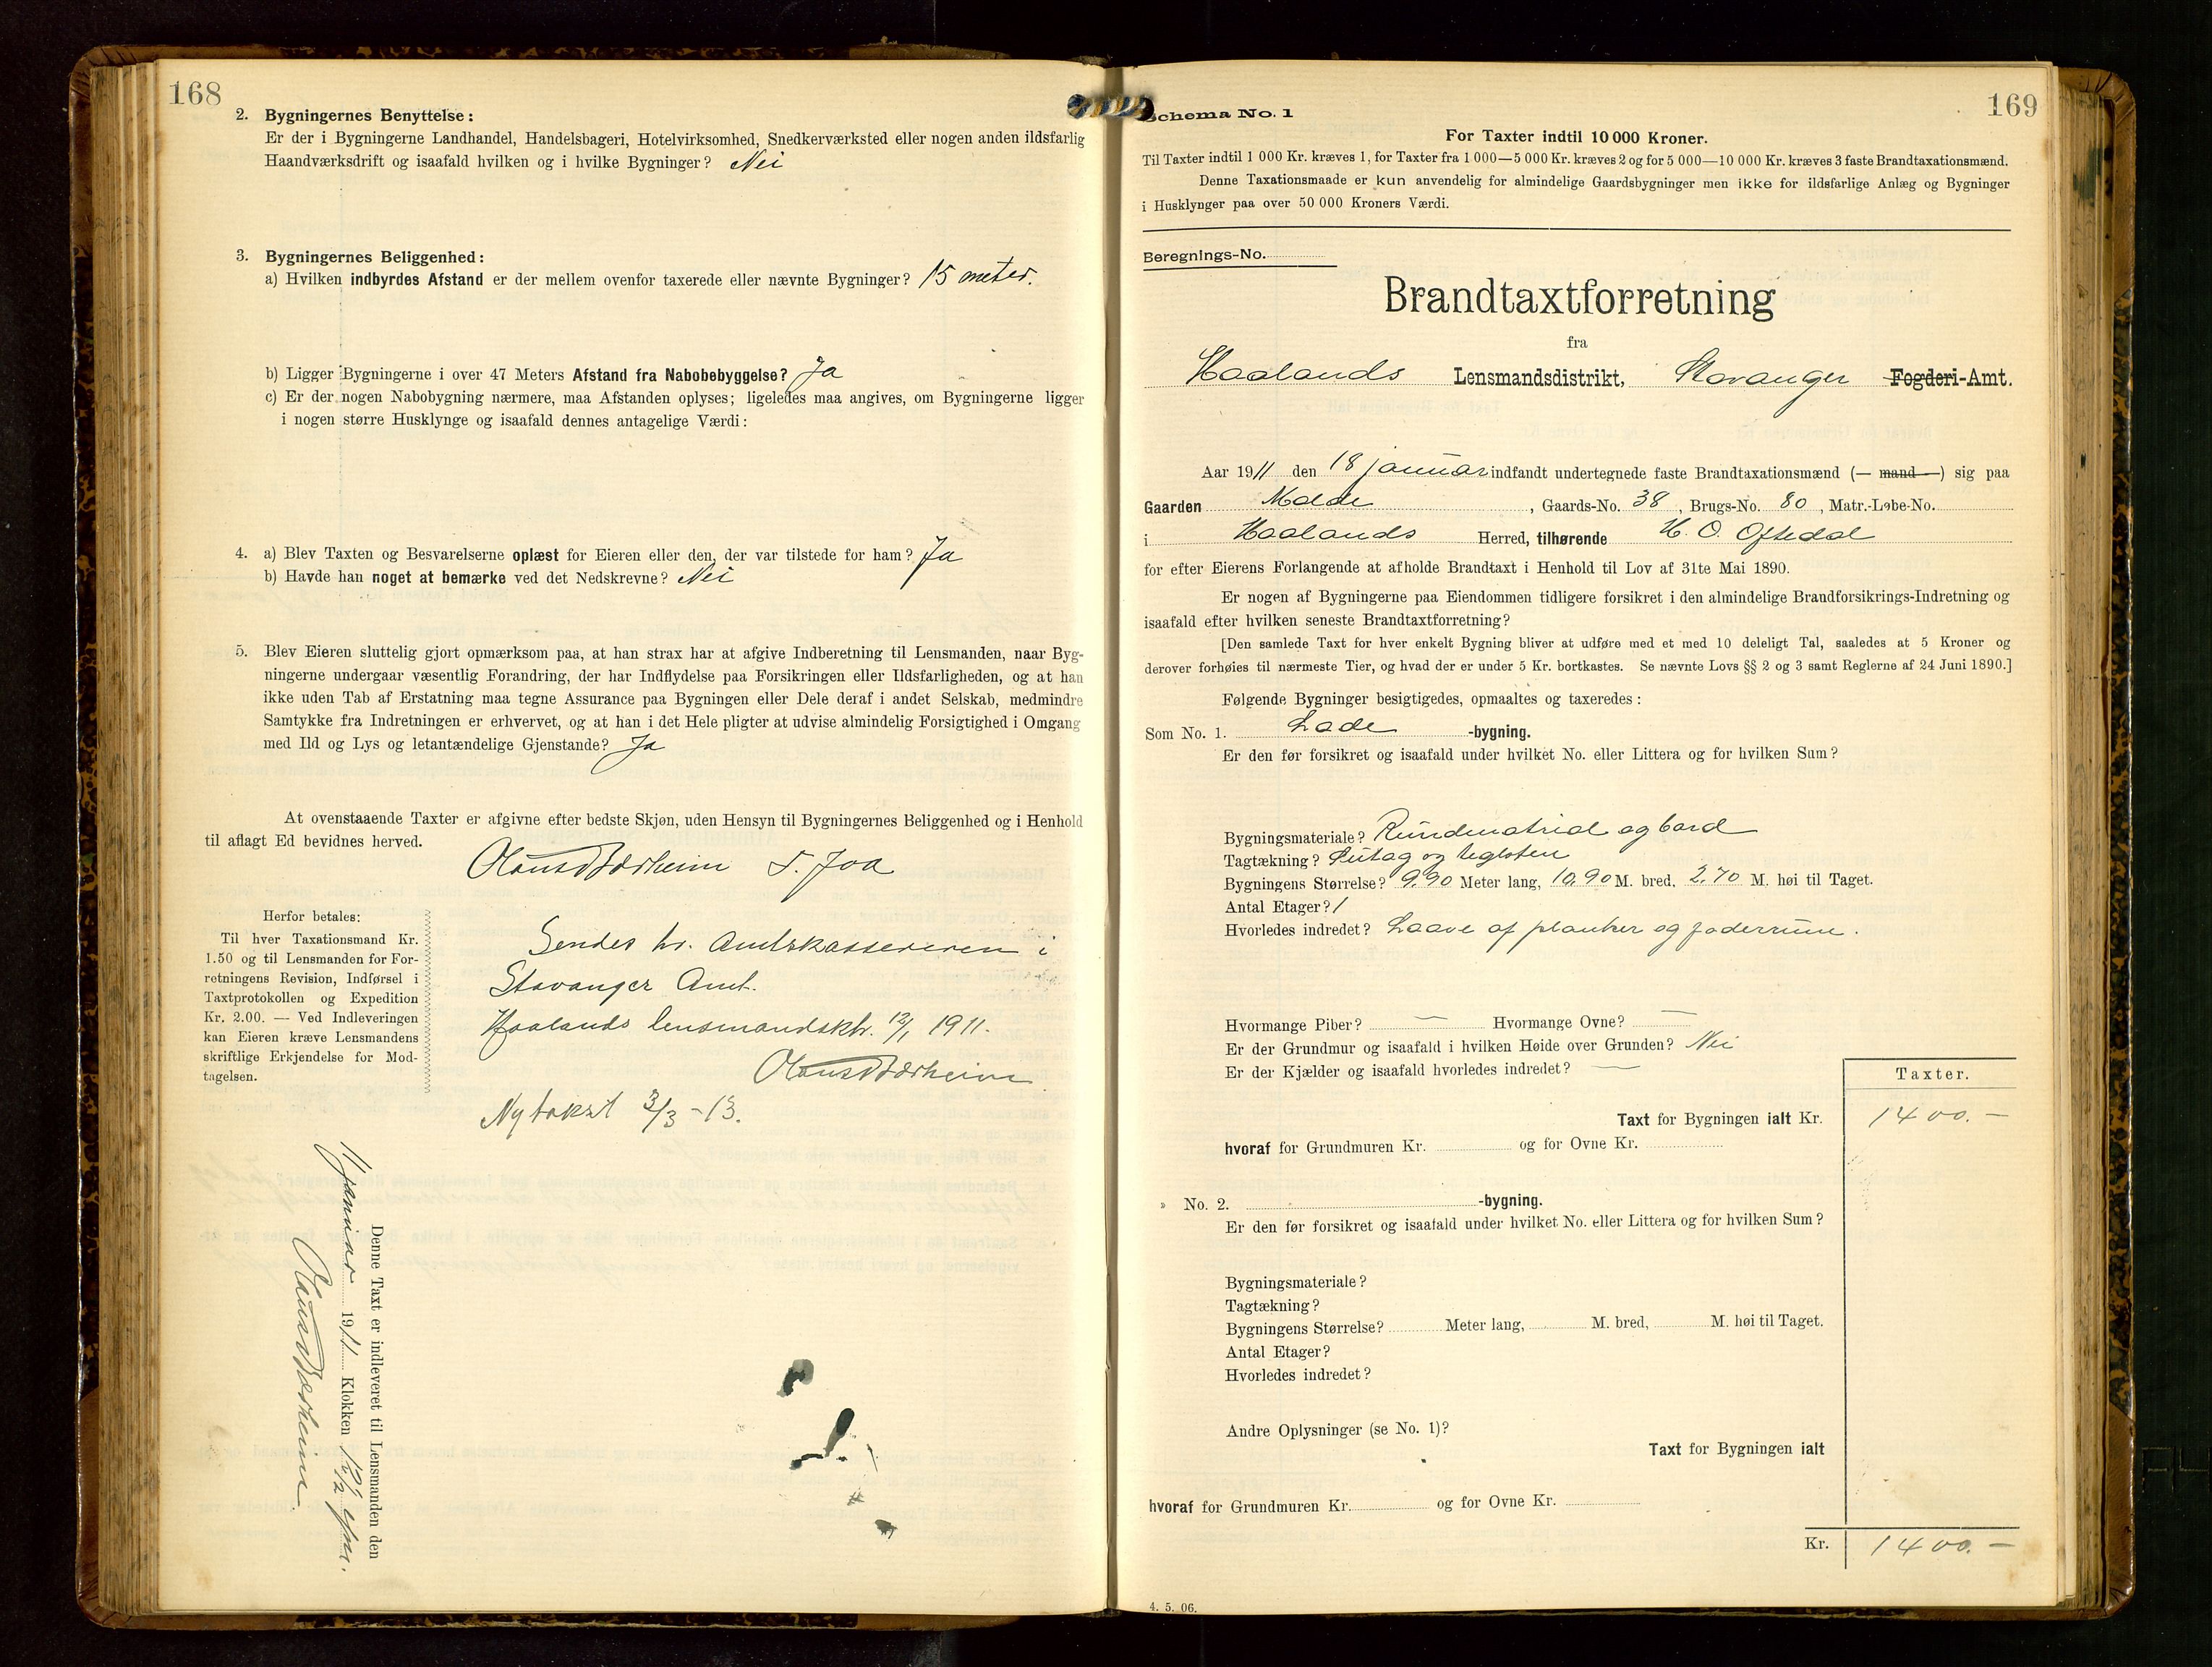 168
2. Bygningernes Benyttelse:
Er der i Bygningerne Landhandel, Handelsbageri, Hotelvirksomhed, Snedkerværksted eller nogen anden ildsfarlig
Haandværksdrift og isaafald hvilken og i hvilke Bygninger? Nei
3. Bygningernes Beliggenhed:
a) Hvilken indbyrdes Afstand er der mellem ovenfor taxerede eller nævnte Bygninger? 15 meter.
b) Ligger Bygningerne i over 47 Meters Afstand fra Nabobebyggelse? Ja
c) Er der nogen Nabobygning nærmere, maa Afstanden oplyses; ligeledes maa angives, om Bygningerne ligger
i nogen større Husklynge og isaafald dennes antagelige Værdi:
4. a) Blev Taxten og Besvarelserne oplæst for Eieren eller den, der var tilstede for ham? Ja
b) Havde han noget at bemærke ved det Nedskrevne? Nei
5. Blev Eieren sluttelig gjort opmærksom paa, at han strax har at afgive Indberetning til Lensmanden, naar Byg-
ningerne undergaar væsentlig Forandring, der har Indflydelse paa Forsikringen eller Ildsfarligheden, og at han
ikke uden Tab af Erstatning maa tegne Assurance paa Bygningen eller Dele deraf i andet Selskab, medmindre
Samtykke fra Indretningen er erhvervet, og at han i det Hele pligter at udvise almindelig Forsigtighed i Omgang
med Ild og Lys og letantændelige Gjenstande? Ja
At ovenstaaende Taxter er afgivne efter bedste Skjøn, uden Hensyn til Bygningernes Beliggenhed og i Henhold
til aflagt Ed bevidnes herved.
Olaus Bærheim T. Joa
Herfor betales:
Til hver Taxationsmand Kr.
1.50 og til Lensmanden for For-
retningens Revision, Indførsel i
Taxtprotokollen og Expedition
Kr. 2.00. — Ved Indleveringen
kan Eieren kræve Lensmandens
skriftlige Erkjendelse for Mod-
tagelsen.
Sendes hr. Amtskassereren i
Stavanger Amt.
Haalands lensmandsktr. 12/1 1911.
Olaus Bærheim
Ny takst 3/3 - 13.
Denne Taxt er indleveret til Lensmanden den
11 januar 1911 Klokken 12 1/2 efm.
Olaus Bærheim
169
Schema No. 1
For Taxter indtil 10 000 Kroner.
Til Taxter indtil 1 000 Kr. kræves 1, for Taxter fra 1 000—5 000 Kr. kræves 2 og for 5 000—10 000 Kr. kræves 3 faste Brandtaxationsmænd.
Denne Taxationsmaade er kun anvendelig for almindelige Gaardsbygninger men ikke for ildsfarlige Anlæg og Bygninger
i Husklynger paa over 50 000 Kroners Værdi.
Beregnings-No.
Brandtaxtforretning
fra
Haalands Lensmandsdistrikt, Stavanger Fogderi-Amt.
Aar 1911 den 18 januar indfandt undertegnede faste Brandtaxationsmænd (— mand —) sig paa
Gaarden Molde, Gaards-No. 38, Brugs-No. 80, Matr.-Løbe-No.
i Haalands Herred, tilhørende H. O. Oftedal
for efter Eierens Forlangende at afholde Brandtaxt i Henhold til Lov af 31te Mai 1890.
Er nogen af Bygningerne paa Eiendommen tidligere forsikret i den almindelige Brandforsikrings-Indretning og
isaafald efter hvilken seneste Brandtaxtforretning?
[Den samlede Taxt for hver enkelt Bygning bliver at udføre med et med 10 deleligt Tal, saaledes at 5 Kroner og
derover forhøies til nærmeste Tier, og hvad der er under 5 Kr. bortkastes. Se nævnte Lovs §§ 2 og 3 samt Reglerne af 24 Juni 1890.]
Følgende Bygninger besigtigedes, opmaaltes og taxeredes:
Som No. 1. Lade -bygning.
Er den før forsikret og isaafald under hvilket No. eller Littera og for hvilken Sum?
Bygningsmateriale? Rundmatrial og bord
Tagtækning? og teglsten
Bygningens Størrelse? 9,90 Meter lang, 10,90 M. bred, 2,70 M. høi til Taget.
Antal Etager? 1
Hvorledes indredet? Laave af planker og foderrum.
Hvormange Piber? — Hvormange Ovne? —
Er der Grundmur og isaafald i hvilken Høide over Grunden? Nei
Er der Kjælder og isaafald hvorledes indredet? —
Taxter.
Taxt for Bygningen ialt Kr. 1400.—
hvoraf for Grundmuren Kr. og for Ovne Kr.
» No. 2. -bygning.
Er den før forsikret og isaafald under hvilket No. eller Littera og for hvilken Sum?
Bygningsmateriale?
Tagtækning?
Bygningens Størrelse? Meter lang, M. bred, M. høi til Taget.
Antal Etager?
Hvorledes indredet?
Andre Oplysninger (se No. 1)?
Taxt for Bygningen ialt
hvoraf for Grundmuren Kr. og for Ovne Kr.
Kr. 1400.—
4. 5. 06.